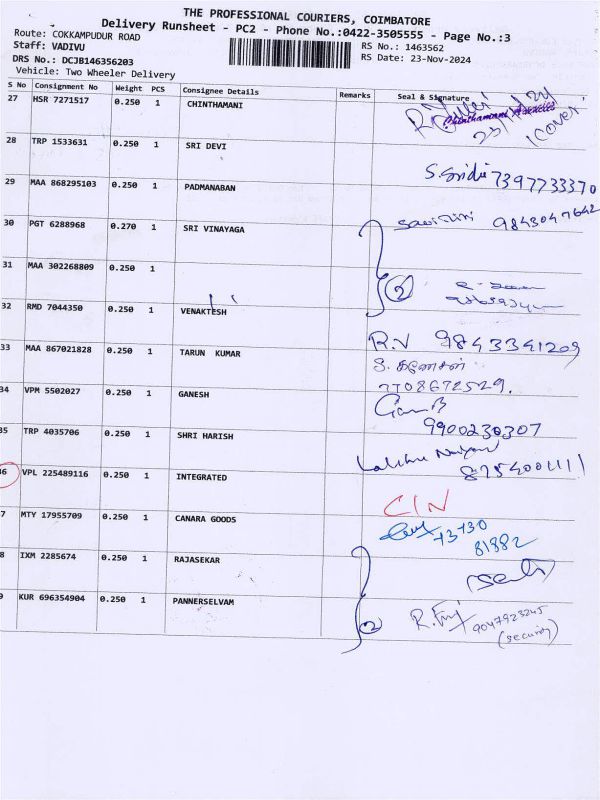 THE PROFESSIONAL COURIERS, COIMBATORE
Delivery Runsheet - PC2 - Phone No.:0422-3505555 - Page No.:3
Route: COKKAMPUDUR ROAD RS No.: 1463562
Staff: VADIVU RS Date: 23-Nov-2024
DRS No.: DCJB146356203
Vehicle: Two Wheeler Delivery
S No Consignment No Weight PCS Consignee Details Remarks Seal & Signature
27 HSR 7271517 0.250 1 CHINTHAMANI Chinthamani Agencies
(Cover)
28 TRP 1533631 0.250 1 SRI DEVI
S. Sridi 7397733370
29 MAA 868295103 0.250 1 PADMANABAN
9843047642
30 PGT 6288968 0.270 1 SRI VINAYAGA
31 MAA 302268809 0.250 1 2
32 RMD 7044350 0.250 1 VENAKTESH
R.V 9843341209
33 MAA 867021828 0.250 1 TARUN KUMAR
7708672529.
34 VPM 5502027 0.250 1 GANESH
9900230307
35 TRP 4035706 0.250 1 SHRI HARISH
8754001111
36 VPL 225489116 0.250 1 INTEGRATED
CIN
7 MTY 17955709 0.250 1 CANARA GOODS
73730
81882
8 IXM 2285674 0.250 1 RAJASEKAR
9 KUR 696354904 0.250 1 PANNERSELVAM
2 9047923245
(security)